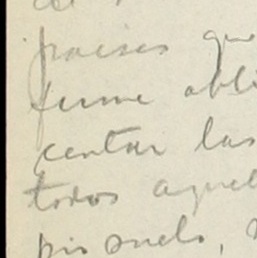 paises que
firme obli
centar las
todos aquel
pis suelo,